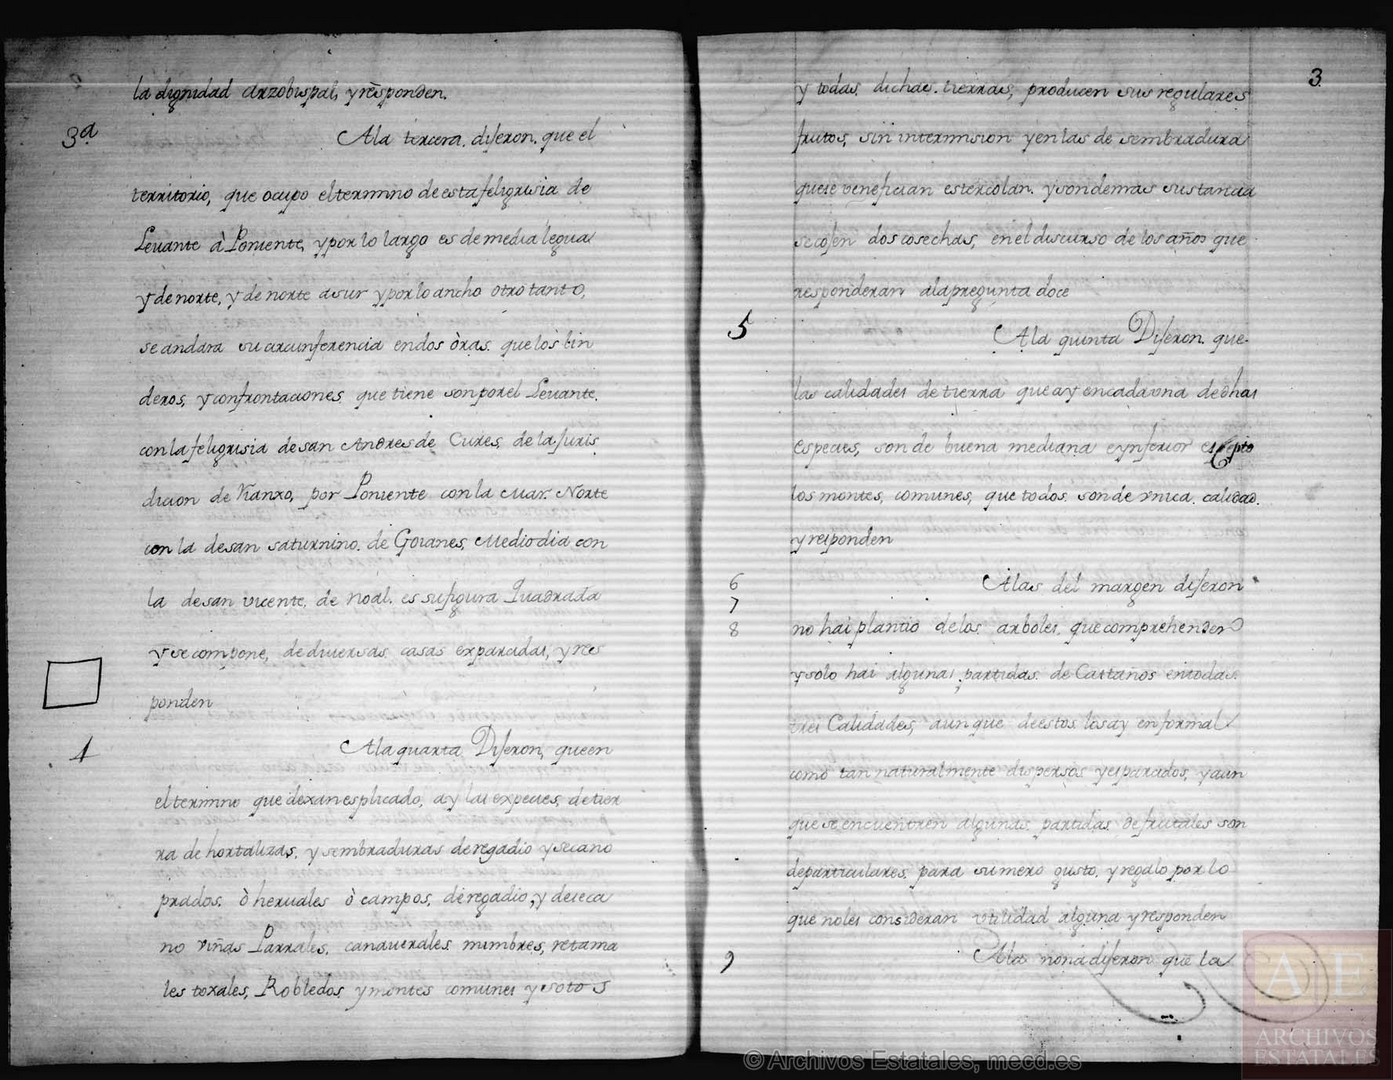 la dignidad Arzobispal, y responden.
3ª
Ala tercera. diseron. que el
territorio, que ocupo eltermino de esta feligrisia de
Levante à Poniente, y por lo largo es de media legua
y de norte, y de norte a sur y por lo ancho otro tanto,
se andara su circunferencia en dos òras. que los lin
deros, y confrontaciones que tiene son por el Levante.
con la feligrisia de san Andres de Cures, de la Juris
dicion de Xanxo, por Poniente con la Mar Norte
con la de san saturnino. de Goianes, Mediodia con
la de san vicente. de noal. es su figura Quadrada
y se compone, de diversas casas exparcidas, y res
ponden
4
Ala quarta Diseron, que en
el termino que dexan esplicado, ay las especies, de tier
ra de hortalizas. y sembraduras de regadio y secano
prados. ò hervales ò campos, de regadio, y de seca
no viñas Parrales. canaverales mimbres, retama
les toxales, Robledos, y montes comunes y sotos
3.
y todas dichas. tierras, producen sus regulares
frutos, sin intermision y en las de sembradura
que se venefician estercolan. y son demas sustancia
se cosen dos cosechas, en el discurso de los años que
responderan ala pregunta doce
5
Ala quinta Diseron. que
las calidades de tierra que ay en cada una de dhas
especies, son de buena mediana e ynferior escepto
los montes, comunes, que todos son de vnica. calidad.
y responden
6
7
8
Alas del margen diseron
no hai plantio delos arboles. que comprehenden
y solo hai algunas partidas. de Castaños en todas.
tres Calidades, aunque de estos los ay en formal
como tan naturalmente dispersos y esparcidos, y aun
que se encuentren algunas partidas de frutales son
de particulares para su mero gusto. y regalo por lo
que no les consideran vtilidad alguna y responden
9
Ala nona diseron que la
© Archivos Estatales, mecd.es
AE
ARCHIVOS
ESTATALES